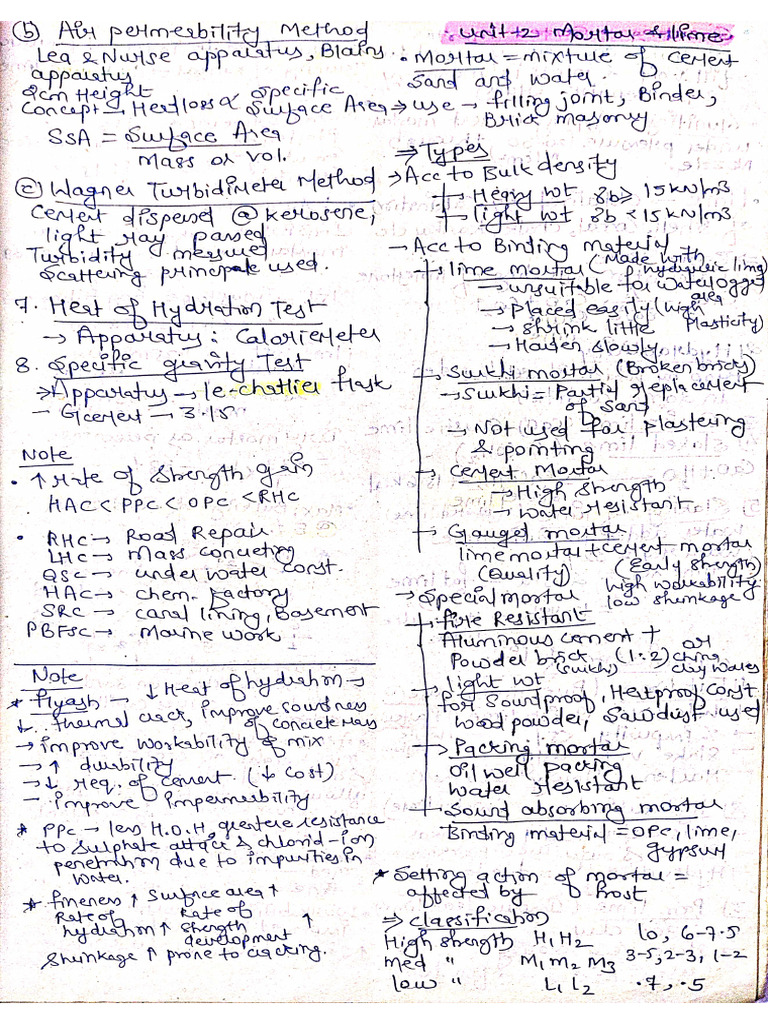 (b) Air permeability Method
Lea & Nurse apparatus, Blains
apparatus
2cm Height
Concept → Headloss ∝ Specific Surface Area
SSA = Surface Area
Mass or vol.
(c) Wagner Turbidimeter Method
Cement dispersed @ kerosene,
light ray passed
Turbidity measured
Scattering principale used.
7. Heat of Hydration Test
→ Apparatus : Caloriemeter
8. Specific gravity Test
⇒ Apparatus → le-chatlier flask
- Gcement → 3.15
Note
• ↑ Rate of Strength gain
HAC < PPC < OPC < RHC
• RHC → Road Repair
LHC → Mass concreting
QSC → under water const.
HAC → chem. factory
SRC → canal lining, Basement
PBFSC → Marine work
Note
* flyash → ↓ Heat of hydration →
↓ thermal crack, improve soundness
of concrete mass
→ improve workability of mix
→ ↑ durability
→ ↓ req. of cement. (↓ cost)
- improve impermeability
* PPC → less H.O.H, greatere resistance
to sulphate attack & chlorid-ion
penetration due to impurities in
water.
* fineness ↑ Surface area ↑
Rate of hydration ↑ Rate of Strength development ↑
Shrinkage ↑ prone to cracking.
Unit-2 Mortar & lime
• Mortar = mixture of cement
Sand and water.
⇒ use → filling joint, Binder,
Brick masonry
⇒ Types
→ Acc to Bulk density
→ Heavy wt γb ≥ 15 kN/m3
→ light wt γb < 15 kN/m3
→ Acc to Binding material
→ lime mortar (Made with hydraulic lime)
→ unsuitable for waterlogged area
→ Placed easily (high plasticity)
→ Shrink little
→ Harden slowly
→ Surkhi mortar (Broken bricks)
→ Surkhi = Partial replacement
of Sand
→ Not used for plastering
& pointing
→ Cement Mortar
→ High Strength
→ Water resistant
→ Gauged mortar
lime mortar + cement mortar
(Quality) (Early strength)
high workability
low shrinkage
→ Special mortar
→ fire Resistant
Aluminous cement +
Powder brick (1:2) or
(surkhi) china clay wares
→ light wt
for Soundproof, Heatproof const
wood powder, Sawdust used
→ Packing mortar
oil well packing
water resistant
→ Sound absorbing mortar
Binding material = OPC, lime,
gypsum
* Setting action of mortar =
affected by frost
⇒ classification
High strength H1 H2 10, 6-7.5
med " M1 M2 M3 3-5, 2-3, 1-2
low " L1 L2 .7, .5